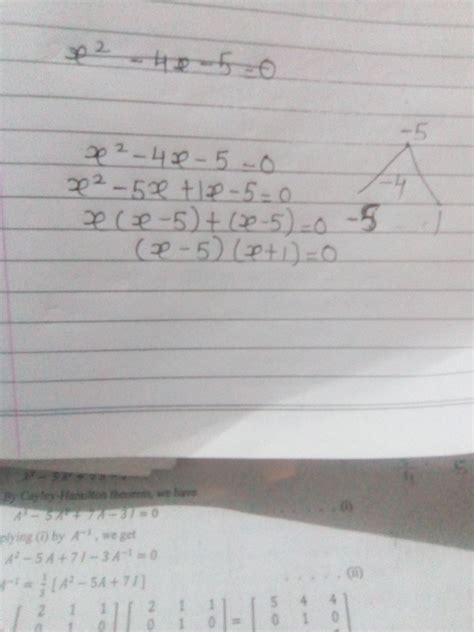 x² - 4x - 5 = 0
-5
x² - 4x - 5 = 0
-4
x² - 5x + 1x - 5 = 0
x(x - 5) + (x - 5) = 0
-5 1
(x - 5)(x + 1) = 0
By Cayley-Hamilton theorem, we have
A³ - 5A² + 7A - 3I = 0 ..... (i)
plying (i) by A⁻¹, we get
A² - 5A + 7I - 3A⁻¹ = 0
A⁻¹ = 1/3 [A² - 5A + 7I] ..... (ii)
[2 1 1] [2 1 1] = [5 4 4]
[0 1 0] [0 1 0] [0 1 0]